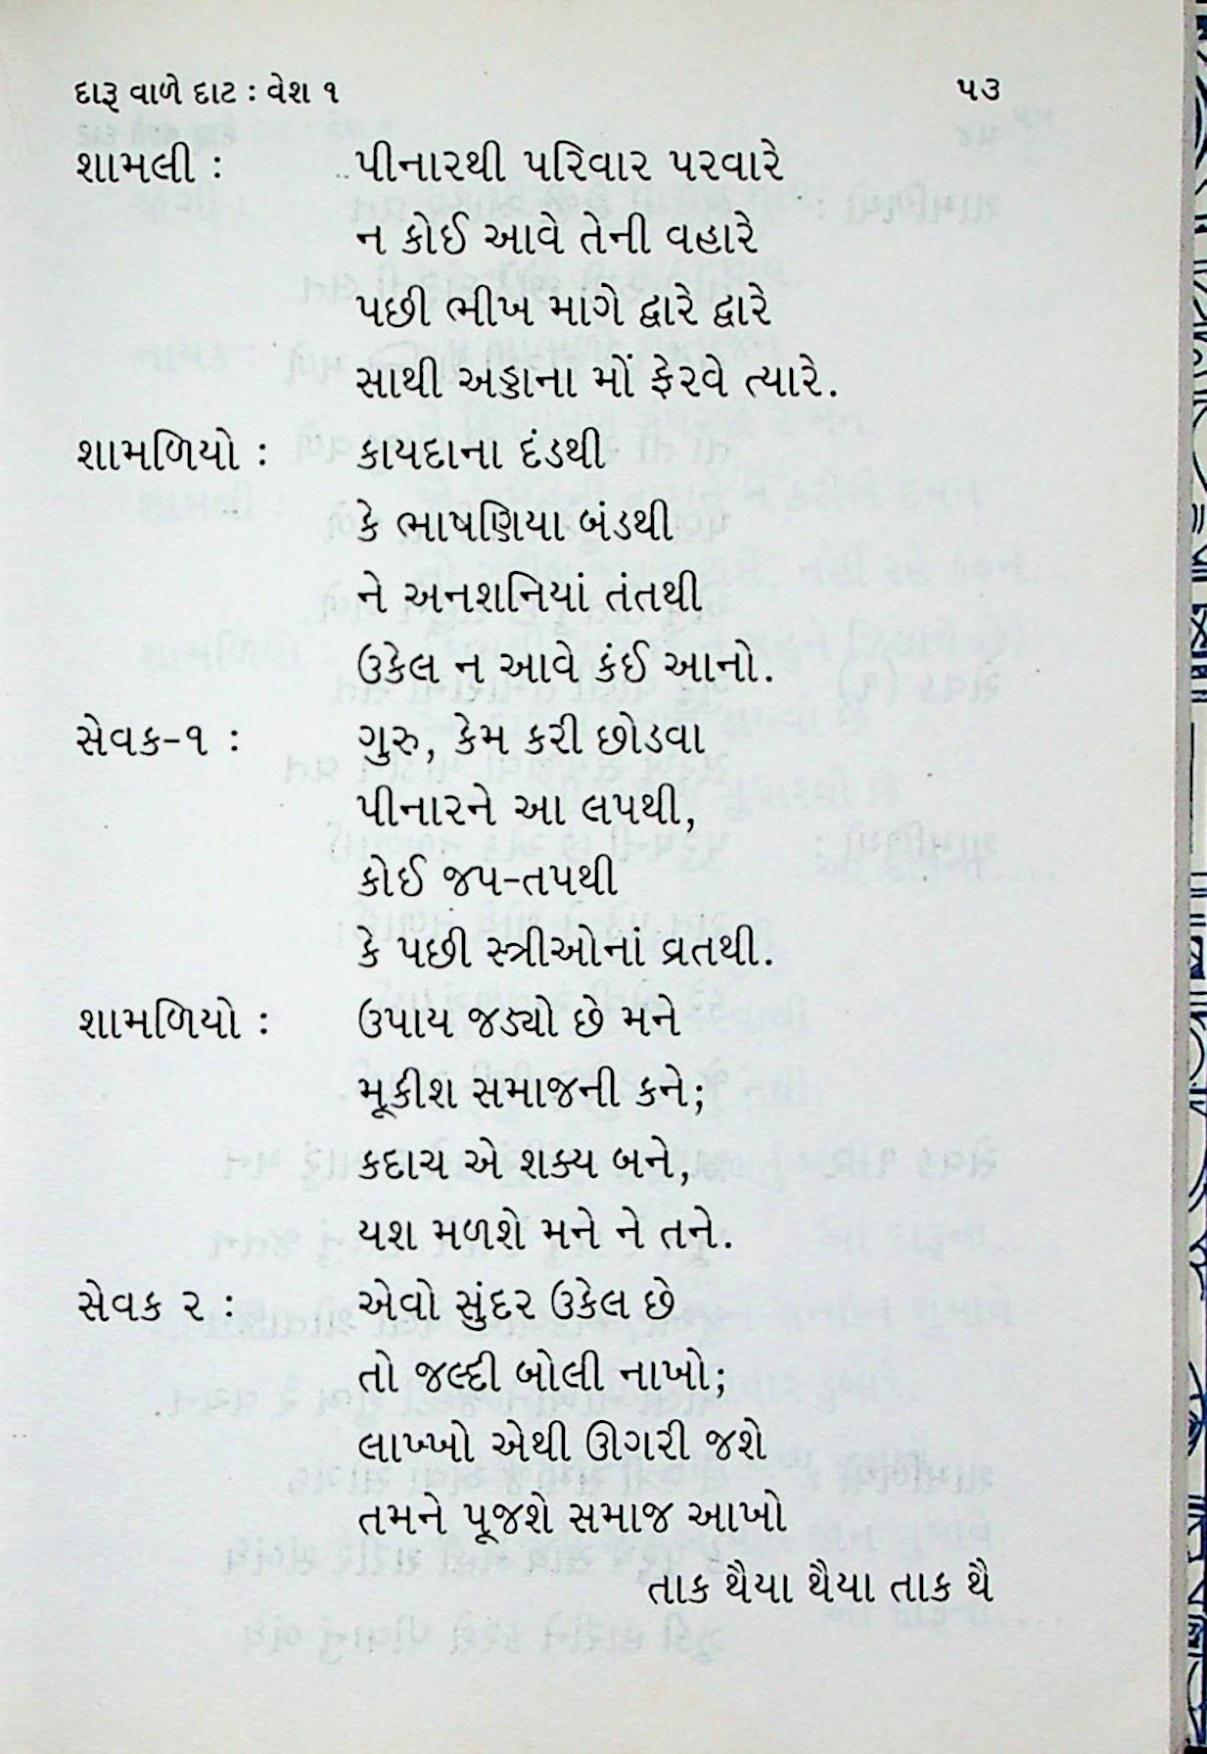 દારૂ વાળે દાટ : વેશ ૧ ૫૩
શામલી : પીનારથી પરિવાર પરવારે
ન કોઈ આવે તેની વહારે
પછી ભીખ માંગે દ્વારે દ્વારે
સાથી અડ્ડાના મોં ફેરવે ત્યારે.
શામળિયો : કાયદાના દંડથી
કે ભાષણિયા બંડથી
ને અનશનિયાં તંતથી
ઉકેલ ન આવે કંઈ આનો.
સેવક-૧ : ગુરુ, કેમ કરી છોડવા
પીનારને આ લપથી,
કોઈ જપ-તપથી
કે પછી સ્ત્રીઓનાં વ્રતથી.
શામળિયો : ઉપાય જડ્યો છે મને
મૂકીશ સમાજની કને;
કદાચ એ શક્ય બને,
યશ મળશે મને ને તને.
સેવક ૨ : એવો સુંદર ઉકેલ છે
તો જલ્દી બોલી નાખો;
લાખ્ખો એથી ઊગરી જશે
તમને પૂજશે સમાજ આખો
તાક થૈયા થૈયા તાક થૈ